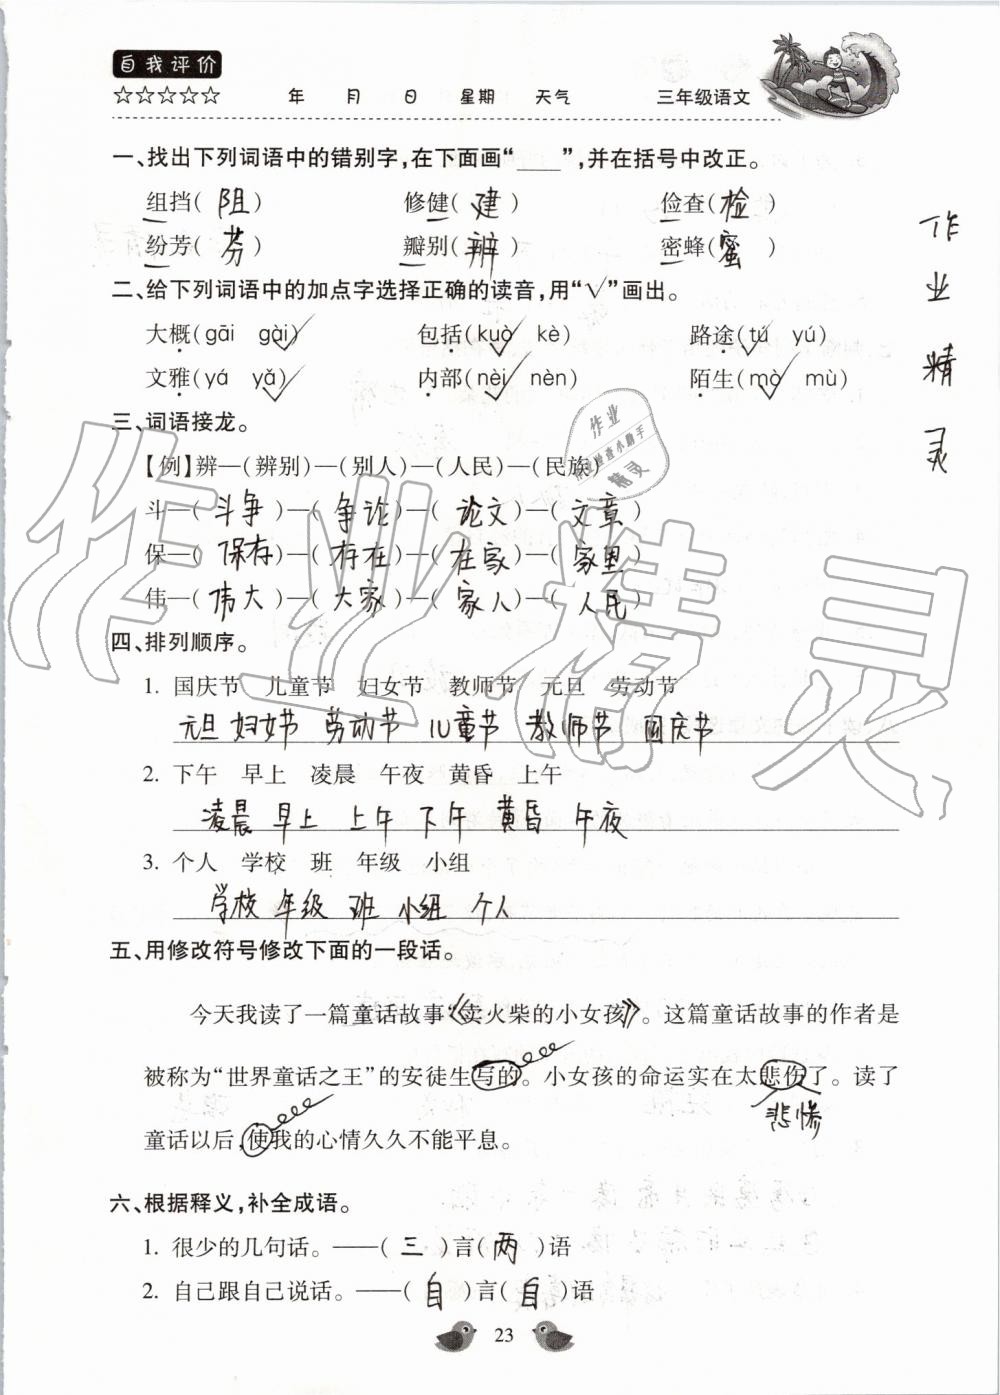 自我评价
☆☆☆☆☆ 年 月 日 星期 天气 三年级语文
一、找出下列词语中的错别字,在下面画“____”,并在括号中改正。
组挡( 阻 ) 修健( 建 ) 俭查( 检 )
纷芳( 芬 ) 瓣别( 辨 ) 密蜂( 蜜 )
二、给下列词语中的加点字选择正确的读音,用“√”画出。
大概(gāi gài)√ 包括(kuò√ kè) 路途(tú√ yú)
文雅(yá yǎ)√ 内部(nèi√ nèn) 陌生(mò√ mù)
三、词语接龙。
【例】辨—(辨别)—(别人)—(人民)—(民族)
斗—( 斗争 )—( 争论 )—( 论文 )—( 文章 )
保—( 保存 )—( 存在 )—( 在家 )—( 家里 )
伟—( 伟大 )—( 大家 )—( 家人 )—( 人民 )
四、排列顺序。
1. 国庆节 儿童节 妇女节 教师节 元旦 劳动节
元旦 妇女节 劳动节 儿童节 教师节 国庆节
2. 下午 早上 凌晨 午夜 黄昏 上午
凌晨 早上 上午 下午 黄昏 午夜
3. 个人 学校 班 年级 小组
学校 年级 班 小组 个人
五、用修改符号修改下面的一段话。
今天我读了一篇童话故事《卖火柴的小女孩》。这篇童话故事的作者是
被称为“世界童话之王”的安徒生写的。小女孩的命运实在太悲伤了。读了
悲惨
童话以后,使我的心情久久不能平息。
六、根据释义,补全成语。
1. 很少的几句话。——( 三 )言( 两 )语
2. 自己跟自己说话。——( 自 )言( 自 )语
23
作业精灵
作业精灵
作业
精灵